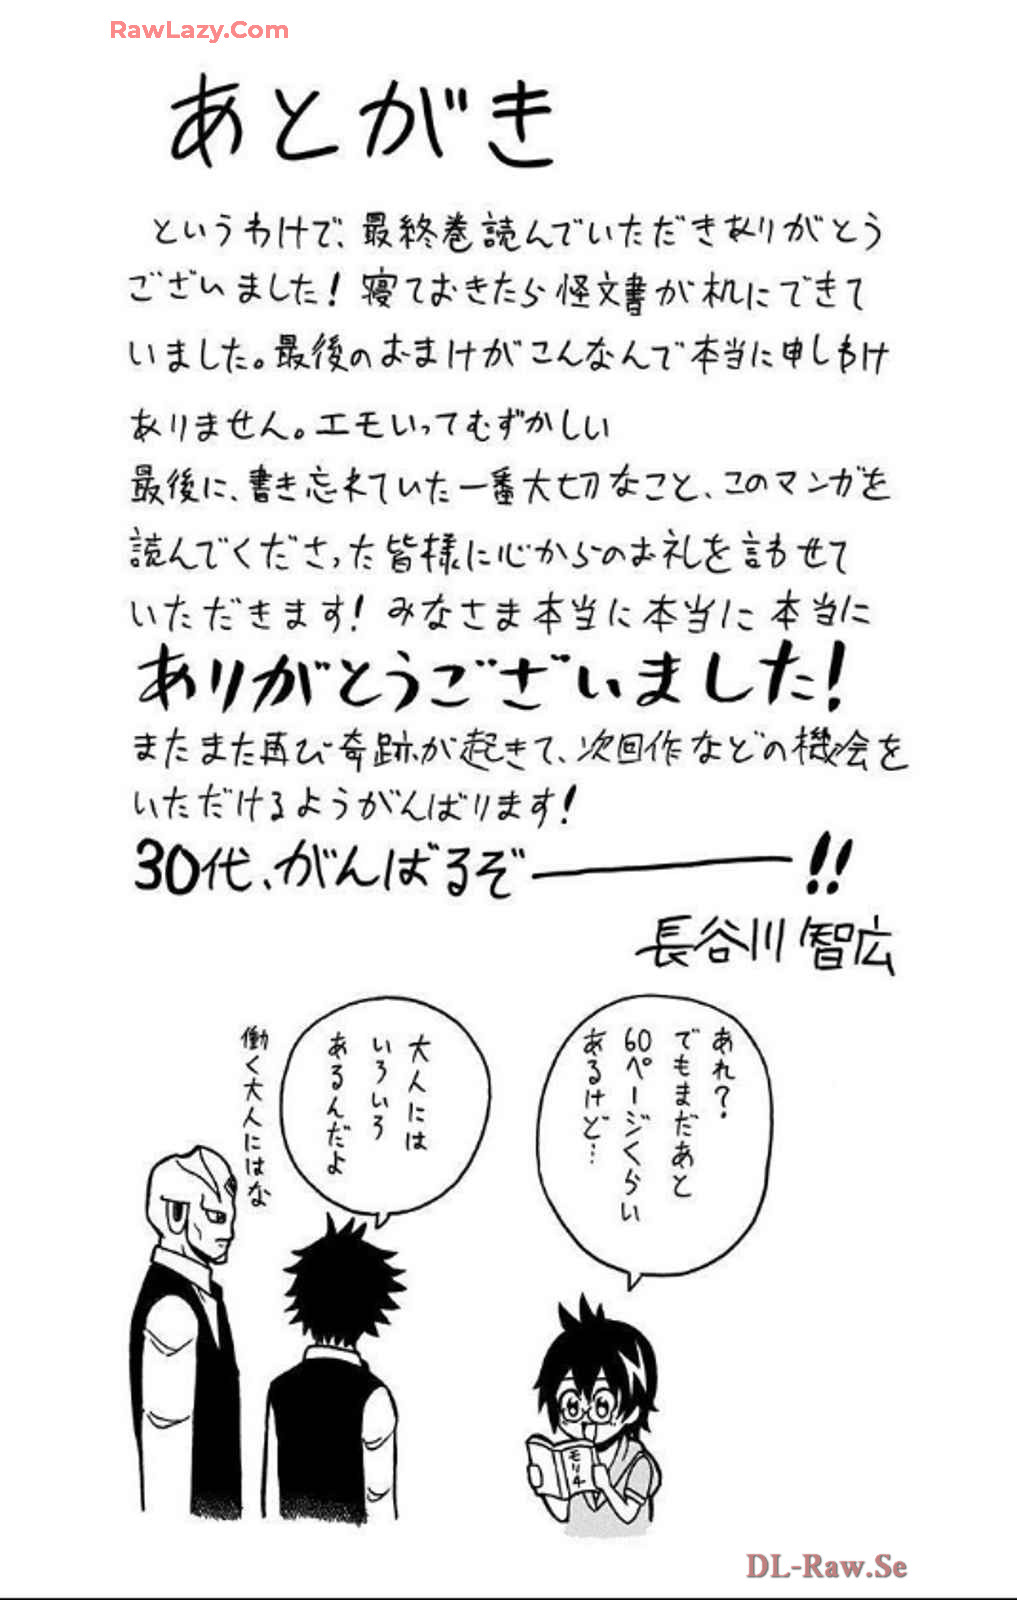 RawLazy.Com
あとがき
というわけで、最終巻読んでいただきありがとう
ございました！寝ておきたら怪文書が机にできて
いました。最後のおまけがこんなんで本当に申しわけ
ありません。エモいってむずかしい
最後に、書き忘れていた一番大切なこと、このマンガを
読んでくださった皆様に心からのお礼を言わせて
いただきます！みなさま本当に本当に本当に
ありがとうございました！
またまた再び奇跡が起きて、次回作などの機会を
いただけるようがんばります！
30代、がんばるぞ――!!
長谷川智広
あれ？
でもまだあと
60ページくらい
あるけど…
大人には
いろいろ
あるんだよ
働く大人にはな
モリ4
DL-Raw.Se